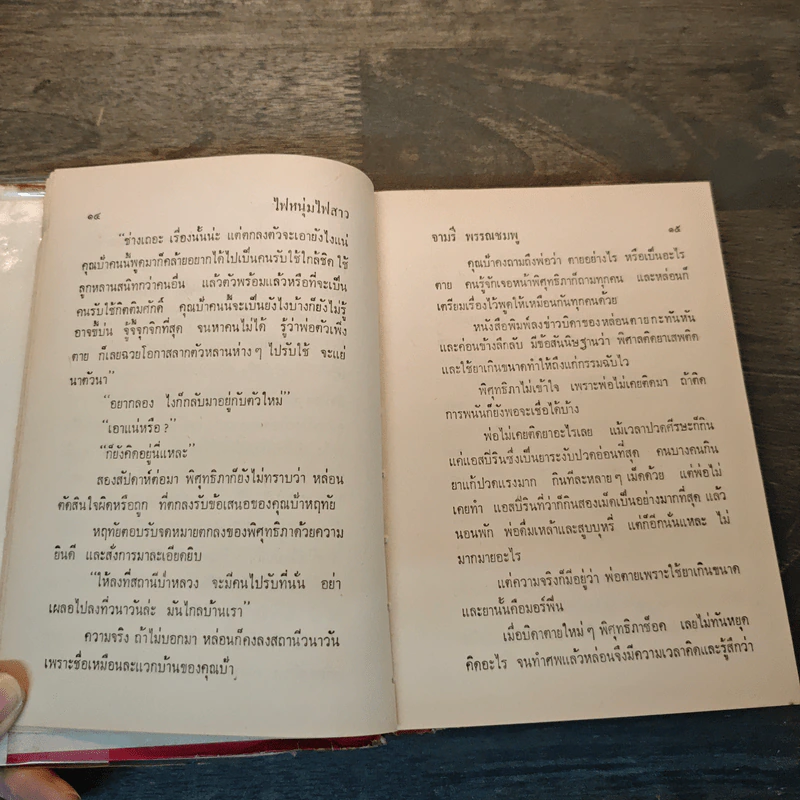 ๑๔
ไฟหนุ่มไฟสาว
“ช่างเถอะ เรื่องนั้นน่ะ แต่ตกลงตัวจะเอายังไงแน่
คุณป้าคนนี้พูดมาก็คล้ายอยากได้ไปเป็นคนรับใช้ใกล้ชิด ใช้
ลูกหลานสนิทกว่าคนอื่น แล้วตัวพร้อมแล้วหรือที่จะเป็น
คนรับใช้กิตติมศักดิ์ คุณป้าคนนี้จะเป็นยังไงบ้างก็ยังไม่รู้
อาจขี้บ่น จู้จี้จุกจิกที่สุด จนหาคนไม่ได้ รู้ว่าพ่อตัวเพิ่ง
ตาย ก็เลยฉวยโอกาสลากตัวหลานห่างๆ ไปรับใช้ จะแย่
นาตัวนา”
“อยากลอง ไงก็กลับมาอยู่กับตัวใหม่”
“เอาแน่หรือ ?”
“ก็ยังคิดอยู่นี่แหละ”
สองสัปดาห์ต่อมา พิศุทธิภาก็ยังไม่ทราบว่า หล่อน
ตัดสินใจผิดหรือถูก ที่ตกลงรับข้อเสนอของคุณป้าหฤทัย
หฤทัยตอบรับจดหมายตกลงของพิศุทธิภาด้วยความ
ยินดี และสั่งการมาละเอียดยิบ
“ให้ลงที่สถานีป่าหลวง จะมีคนไปรับที่นั่น อย่า
เผลอไปลงที่วนาวันล่ะ มันไกลบ้านเรา”
ความจริง ถ้าไม่บอกมา หล่อนก็คงลงสถานีวนาวัน
เพราะชื่อเหมือนละแวกบ้านของคุณป้า
จามรี พรรณชมพู
๑๕
คุณป้าคงถามถึงพ่อว่า ตายอย่างไร หรือเป็นอะไร
ตาย คนรู้จักเจอหน้าพิศุทธิภาก็ถามทุกคน และหล่อนก็
เตรียมเรื่องไว้พูดให้เหมือนกันทุกคนด้วย
หนังสือพิมพ์ลงข่าวบิดาของหล่อนตายกะทันหัน
และค่อนข้างลึกลับ มีข้อสันนิษฐานว่า พิศาลติดยาเสพติด
และใช้ยาเกินขนาดทำให้ถึงแก่กรรมฉับไว
พิศุทธิภาไม่เข้าใจ เพราะพ่อไม่เคยติดมา ถ้าติด
การพนันก็ยังพอจะเชื่อได้บ้าง
พ่อไม่เคยติดยาอะไรเลย แม้เวลาปวดศีรษะก็กิน
แค่แอสไพรินซึ่งเป็นยาระงับปวดอ่อนที่สุด คนบางคนกิน
ยาแก้ปวดแรงมาก กินทีละหลายๆ เม็ดด้วย แต่พ่อไม่
เคยทำ แอสไพรินที่ว่าก็กินสองเม็ดเป็นอย่างมากที่สุด แล้ว
นอนพัก พ่อดื่มเหล้าและสูบบุหรี่ แต่ก็อีกนั่นแหละ ไม่
มากมายอะไร
แต่ความจริงก็มีอยู่ว่า พ่อตายเพราะใช้ยาเกินขนาด
และยานั้นคือมอร์ฟีน
เมื่อบิดาตายใหม่ๆ พิศุทธิภาช็อค เลยไม่ทันหยุด
คิดอะไร จนทำศพแล้วหล่อนจึงมีความเวลาคิดและรู้สึกว่า